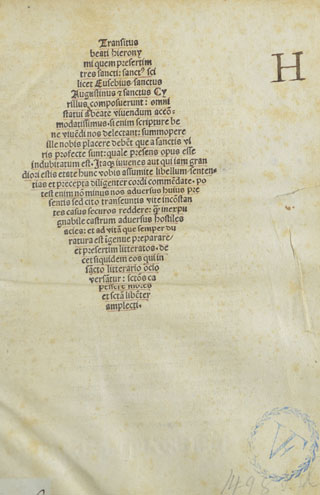 Transitus
beati hierony
mi quem presertim
tres sancti: sanctꝰ sci
licet Eusebius sanctus
Augustinus ⁊ sanctus Cy
rillus composuerunt: omni
statui a beate viuendum accō⸗
modatissimus. si enim scripture be
ne viuēdi nos delectant: summopere
ille nobis placere debēt que a sanctis vi
ris profecte sunt: quale presens opus esse
indubitatum est. Itaqꝫ iuuenes aut qui iam gran
diori estis etate hunc vobis assumite libellum senten⸗
tias et precepta diligenter cordi commēdate. po
test enim nō minus nos aduersus huius pre
sentis sed cito transeuntis vite incōstan
tes casus securos reddere: ꝙ inexpu
gnabile castrum aduersus hostiles
acies: et ad vitā que semper du
ratura est igenue preparare/
et presertim litteratos. de
cet siquidem eos qui in
sācto litterario ōcio
versātur: sctōs ca
pescere mores
et sctā libēter
amplecti.
H